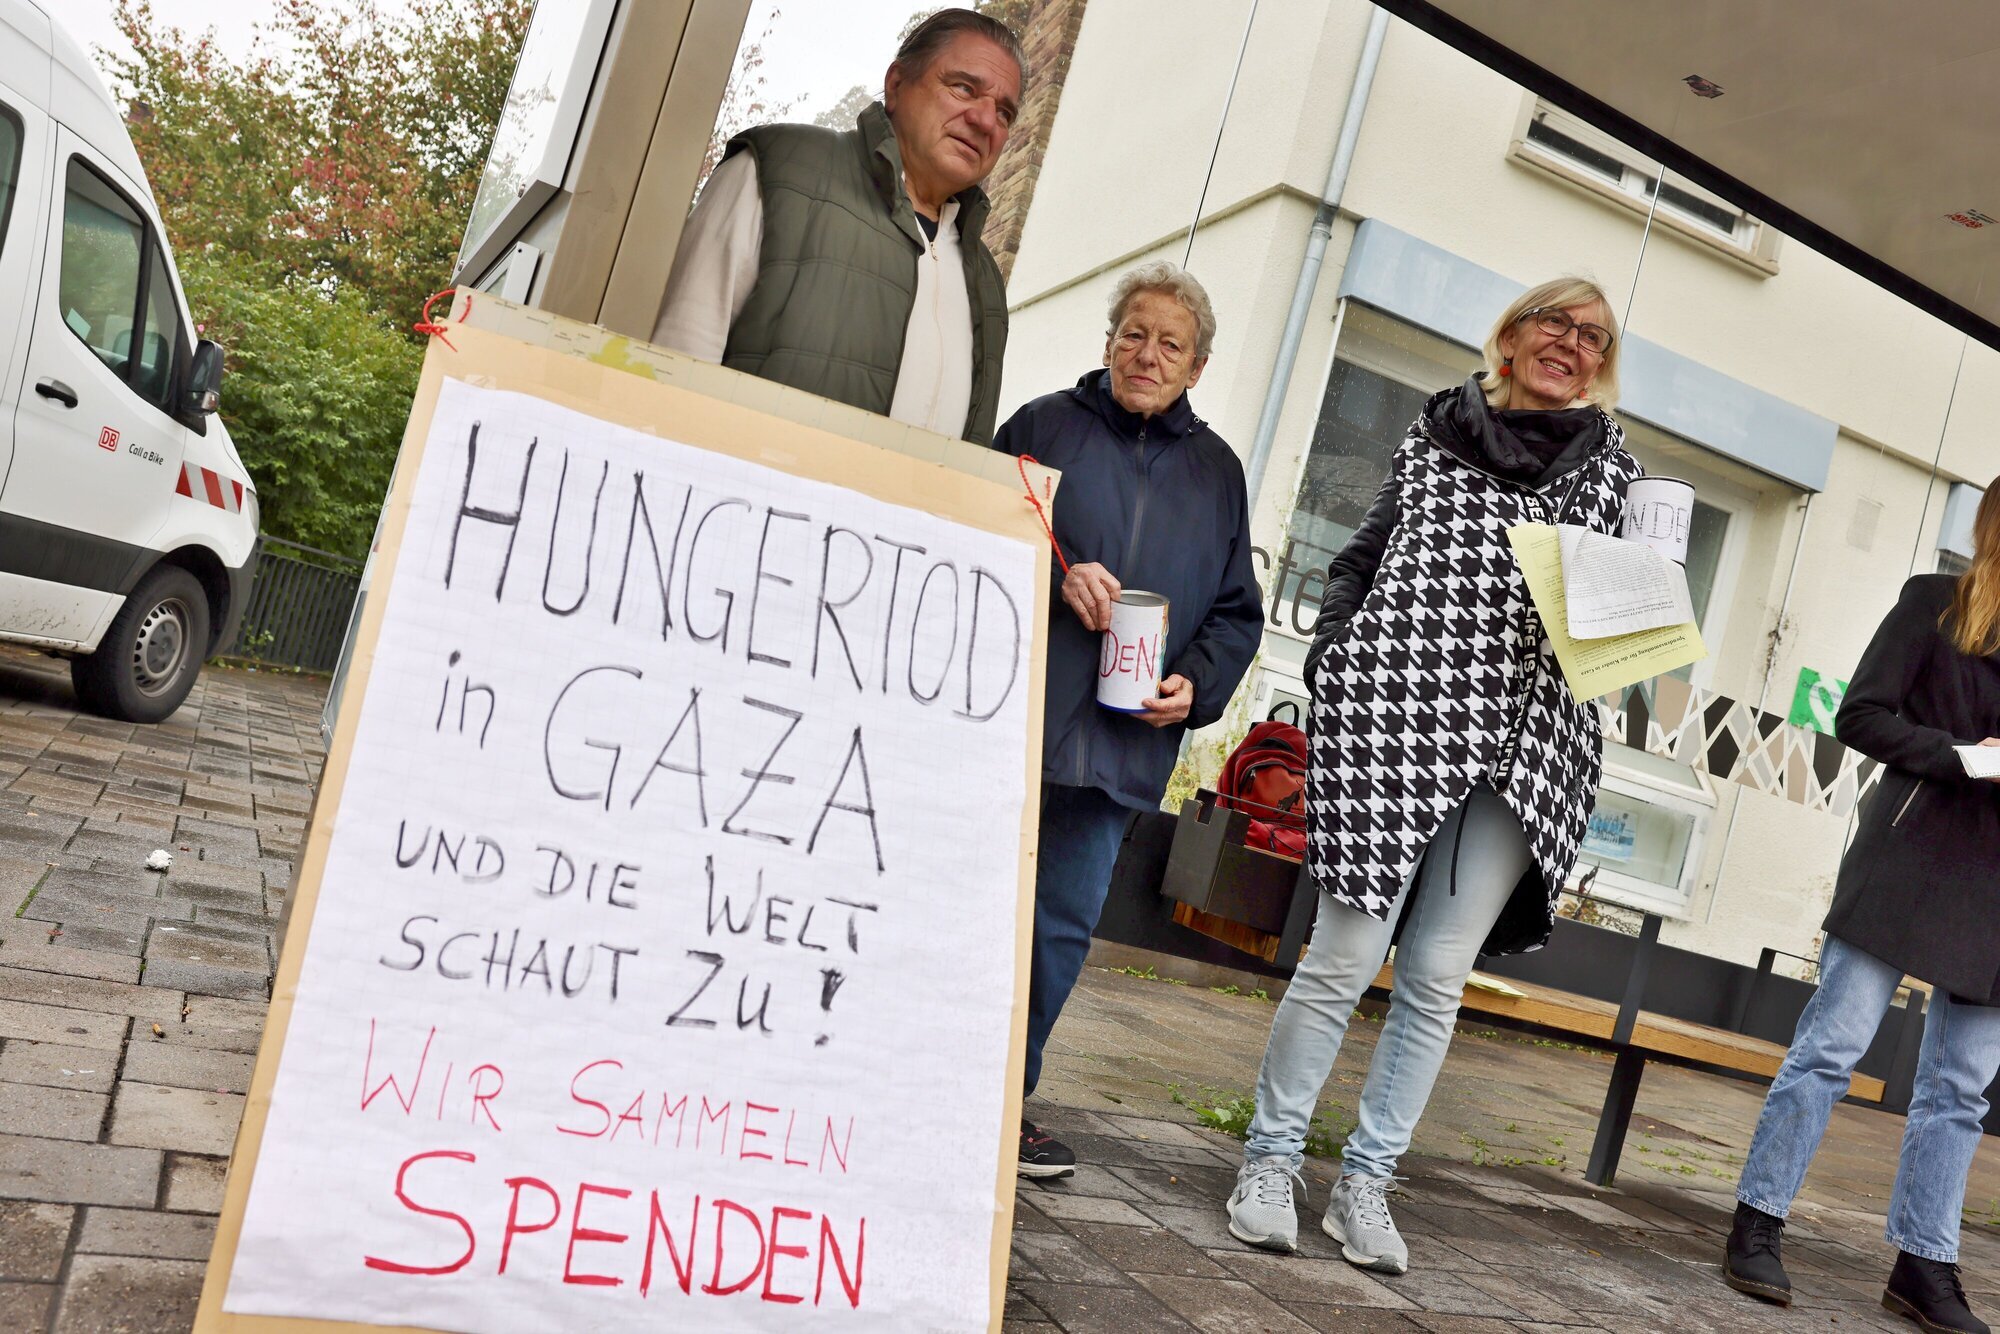 HUNGERTOD
in GAZA
UND DIE WELT
SCHAUT ZU!
WIR SAMMELN
SPENDEN
DB
Call a Bike
DEN
NDE
BE
LIFE IS
Spendensammlung für die Kinder in Gaza
ste